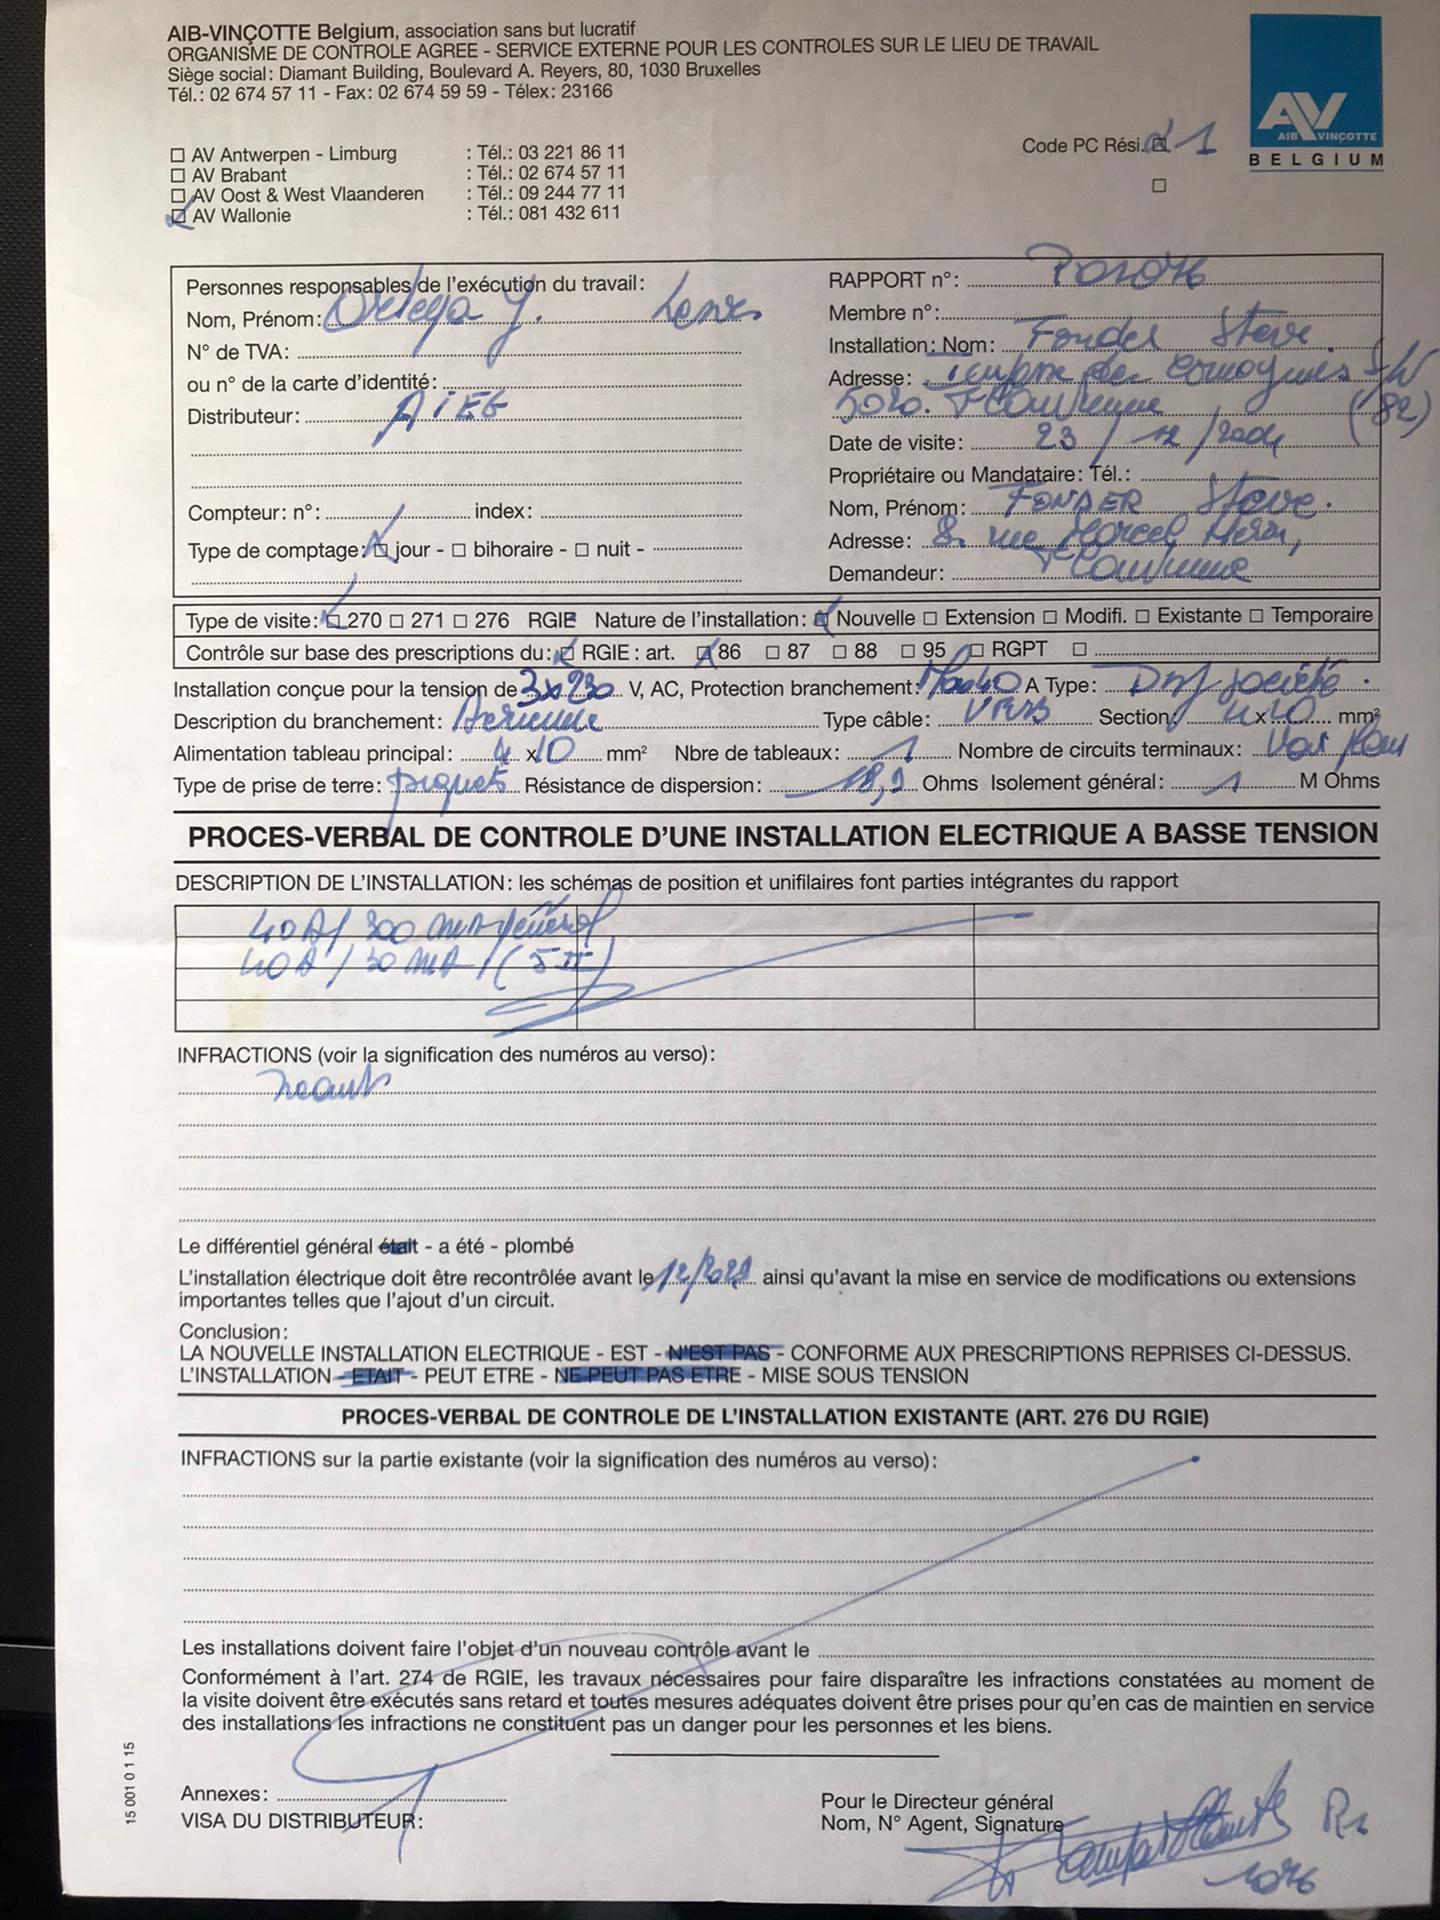 AIB-VINÇOTTE Belgium, association sans but lucratif
ORGANISME DE CONTROLE AGREE - SERVICE EXTERNE POUR LES CONTROLES SUR LE LIEU DE TRAVAIL
Siège social: Diamant Building, Boulevard A. Reyers, 80, 1030 Bruxelles
Tél.: 02 674 57 11 - Fax: 02 674 59 59 - Télex: 23166
AV
AIB VINÇOTTE
BELGIUM
Code PC Rési. 1
AV Antwerpen - Limburg : Tél.: 03 221 86 11
AV Brabant : Tél.: 02 674 57 11
AV Oost & West Vlaanderen : Tél.: 09 244 77 11
AV Wallonie : Tél.: 081 432 611
Personnes responsables de l'exécution du travail:
Nom, Prénom: Ortega Y.
N° de TVA:
ou n° de la carte d'identité:
Distributeur: AIEG
Compteur: n°: index:
Type de comptage: jour - bihoraire - nuit -
RAPPORT n°:
Membre n°:
Installation: Nom: Fonder Steve
Adresse:
5020. Flawinne (82)
Date de visite: 23/12/2004
Propriétaire ou Mandataire: Tél.:
Nom, Prénom: FONDER Steve.
Adresse: 8. rue Marcel
Demandeur: Flawinne
Type de visite: 270 271 276 RGIE Nature de l'installation: Nouvelle Extension Modifi. Existante Temporaire
Contrôle sur base des prescriptions du: RGIE: art. 86 87 88 95 RGPT
Installation conçue pour la tension de 3x230 V, AC, Protection branchement: 40 A Type: société
Description du branchement: Aérienne Type câble: Section: 4 x 10 mm²
Alimentation tableau principal: 4 x 10 mm² Nbre de tableaux: 1 Nombre de circuits terminaux: Voir plan
Type de prise de terre: piquets Résistance de dispersion: 18,2 Ohms Isolement général: 1 M Ohms
PROCES-VERBAL DE CONTROLE D'UNE INSTALLATION ELECTRIQUE A BASSE TENSION
DESCRIPTION DE L'INSTALLATION: les schémas de position et unifilaires font parties intégrantes du rapport
40A/300 mA général
40A/30 mA/(5II)
INFRACTIONS (voir la signification des numéros au verso):
néant
Le différentiel général était - a été - plombé
L'installation électrique doit être recontrôlée avant le 12/2029 ainsi qu'avant la mise en service de modifications ou extensions
importantes telles que l'ajout d'un circuit.
Conclusion:
LA NOUVELLE INSTALLATION ELECTRIQUE - EST - N'EST PAS - CONFORME AUX PRESCRIPTIONS REPRISES CI-DESSUS.
L'INSTALLATION - ETAIT - PEUT ETRE - NE PEUT PAS ETRE - MISE SOUS TENSION
PROCES-VERBAL DE CONTROLE DE L'INSTALLATION EXISTANTE (ART. 276 DU RGIE)
INFRACTIONS sur la partie existante (voir la signification des numéros au verso):
Les installations doivent faire l'objet d'un nouveau contrôle avant le
Conformément à l'art. 274 de RGIE, les travaux nécessaires pour faire disparaître les infractions constatées au moment de
la visite doivent être exécutés sans retard et toutes mesures adéquates doivent être prises pour qu'en cas de maintien en service
des installations les infractions ne constituent pas un danger pour les personnes et les biens.
Annexes:
VISA DU DISTRIBUTEUR:
Pour le Directeur général
Nom, N° Agent, Signature
15 001 0 1 15